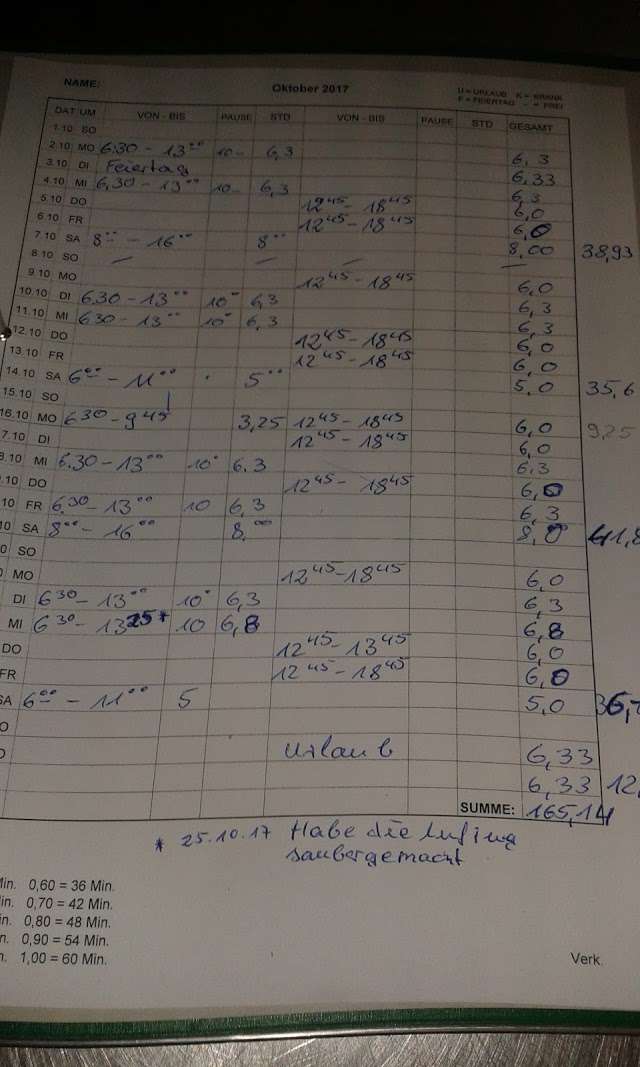 NAME: Oktober 2017 U = URLAUB K = KRANK
F = FEIERTAG - = FREI
DATUM VON - BIS PAUSE STD VON - BIS PAUSE STD GESAMT
1.10 SO
2.10 MO 6:30 - 13⁰⁰ 10 - 6,3 6,3
3.10 DI Feiertag 6,33
4.10 MI 6,30 - 13⁰⁰ 10 - 6,3 6,3
5.10 DO 12⁴⁵ - 18⁴⁵ 6,0
6.10 FR 12⁴⁵ - 18⁴⁵ 6,0
7.10 SA 8⁰⁰ - 16⁰⁰ 8⁰⁰ 8,00 38,93
8.10 SO — — — —
9.10 MO 12⁴⁵ - 18⁴⁵ 6,0
10.10 DI 6.30 - 13⁰⁰ 10 6,3 6,3
11.10 MI 6.30 - 13⁰⁰ 10 6,3 6,3
12.10 DO 12⁴⁵ - 18⁴⁵ 6,0
13.10 FR 12⁴⁵ - 18⁴⁵ 6,0
14.10 SA 6⁰⁰ - 11⁰⁰ 5⁰⁰ 5,0 35,6
15.10 SO
16.10 MO 6³⁰ - 9⁴⁵ 3,25 12⁴⁵ - 18⁴⁵ 6,0 9,25
7.10 DI 12⁴⁵ - 18⁴⁵ 6,0
8.10 MI 6.30 - 13⁰⁰ 10 6.3 6,3
.10 DO 12⁴⁵ - 18⁴⁵ 6,0
10 FR 6.30 - 13⁰⁰ 10 6,3 6,3
10 SA 8⁰⁰ - 16⁰⁰ 8,⁰⁰ 8,0 41,8
0 SO
MO 12⁴⁵ - 18⁴⁵ 6,0
DI 6³⁰ - 13⁰⁰ 10 6,3 6,3
MI 6³⁰ - 13²⁵* 10 6,8 6,8
DO 12⁴⁵ - 13⁴⁵ 6,0
FR 12⁴⁵ - 18⁴⁵ 6,0
SA 6⁰⁰ - 11⁰⁰ 5 5,0 36,
O
Urlaub 6,33
6,33 12,
SUMME: 165,14
* 25.10.17 Habe die
saubergemacht
Min. 0,60 = 36 Min.
in. 0,70 = 42 Min.
n. 0,80 = 48 Min.
n. 0,90 = 54 Min.
. 1,00 = 60 Min.
Verk.